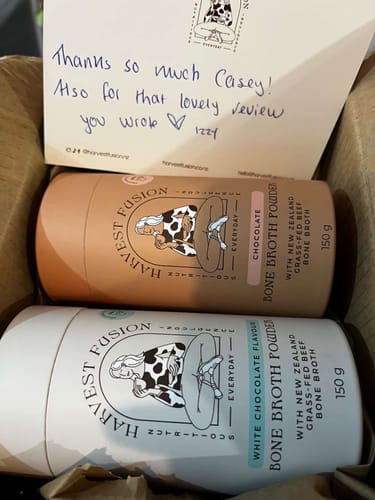 EVERYDAY
Thanks so much Casey!
Also for that lovely review
you wrote ♡ Izzy
@harvestfusionnz
harvestfusion.nz
HARVEST FUSION
INDULGENCE
NUTRITIOUS
EVERYDAY
CHOCOLATE
BONE BROTH POWDER
WITH NEW ZEALAND
GRASS-FED BEEF
BONE BROTH
150 g
HARVEST FUSION
INDULGENCE
NUTRITIOUS
EVERYDAY
WHITE CHOCOLATE FLAVOUR
BONE BROTH POWDER
WITH NEW ZEALAND
GRASS-FED BEEF
BONE BROTH
150 g